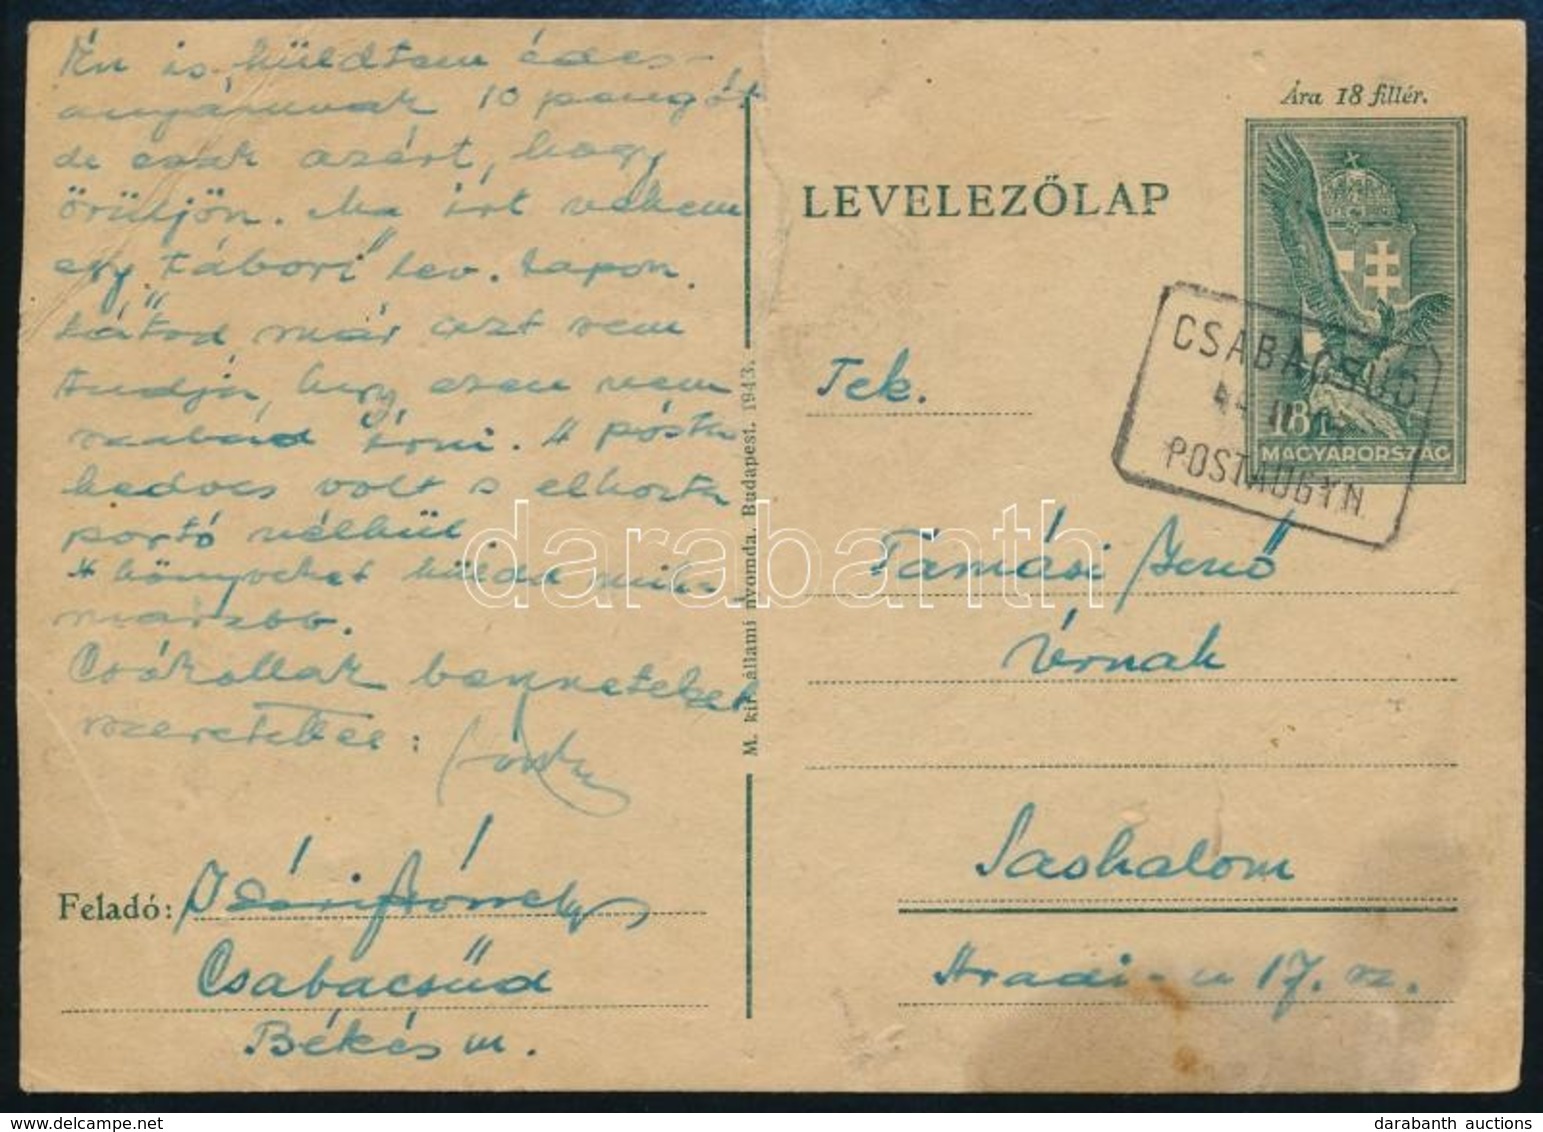 Én is küldtem édes-
anyámnak 10 pengőt
de csak azért, hogy
örüljön. Ma írt nekem
egy tábori lev. lapon.
Látod már azt sem
tudja, hogy ezen nem
szabad írni. A posta
kedves volt s elhozta
portó nélkül.
A könyveket küldd mi-
Csókollak benneteket
szeretettel:
Feladó:
Csabacsűd
Békés m.
M. kir. állami nyomda. Budapest. 1943.
Ára 18 fillér.
LEVELEZŐLAP
18 f
MAGYARORSZÁG
CSABACSUD
POSTAÜGYN
Tek.
Tamási Jenő
Úrnak
Sashalom
Hradi-u 17. sz.
darabanth
darabanth auctions